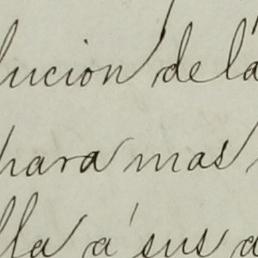 lucion de la
para mas
lla á sus a